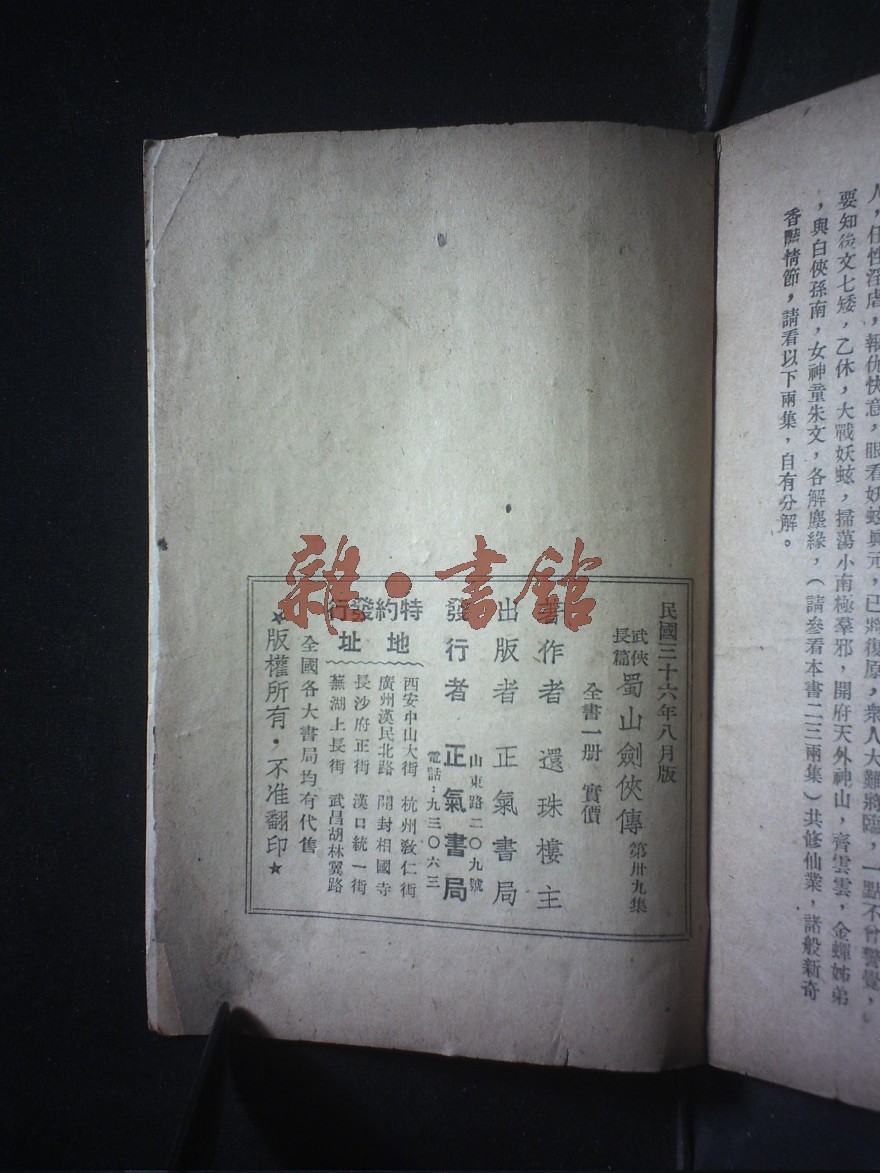 人，任性淫虐，報仇快意，眼看妖蚿與元，已將復原，衆人大難將臨，一點不曾警覺，
要知後文七矮，乙休，大戰妖蚿，掃蕩小南極羣邪，開府天外神山，齊雲雲，金蟬姊弟
，與白俠孫南，女神童朱文，各解塵緣，（請參看本書二三兩集）共修仙業，諸般新奇
香豔情節，請看以下兩集，自有分解。
民國三十六年八月版
武俠長篇 蜀山劍俠傳 第卅九集
全書一册 實價
著作者 還珠樓主
出版者 正氣書局
山東路二〇九號
發行者 正氣書局
電話：九三〇六三
特約發行
地址
西安中山大街 杭州教仁街
廣州漢民北路 開封相國寺
長沙府正街 漢口統一街
蕪湖上長街 武昌胡林翼路
全國各大書局均有代售
★版權所有・不准翻印★
雜・書館